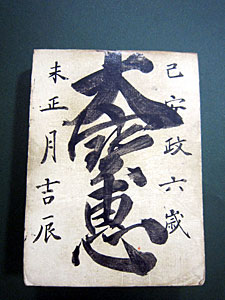 己安政六歳
大寳恵
未正月吉辰